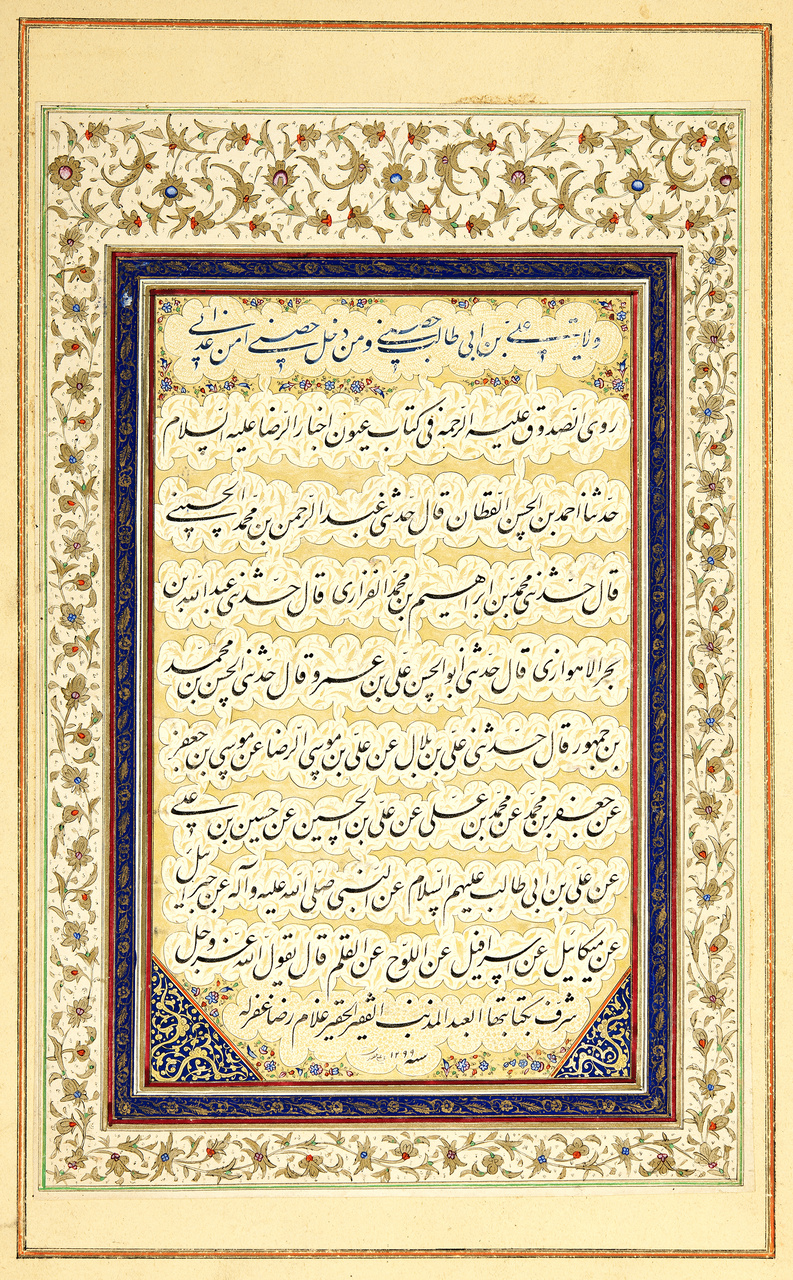 ولایة علی بن ابی طالب حصنی و من دخل حصنی امن عذابی
روی الصدوق علیه الرحمه فی کتاب عیون اخبار الرضا علیه السلام
حدثنا احمد بن الحسن القطان قال حدثنی عبد الرحمن بن محمد الحسینی
قال حدثنی محمد بن ابراهیم بن محمد الفزاری قال حدثنی عبد الله بن
بحر الاهوازی قال حدثنی ابو الحسن علی بن عمرو قال حدثنی الحسن بن محمد
بن جمهور قال حدثنی علی بن بلال عن علی بن موسی الرضا عن موسی بن جعفر
عن جعفر بن محمد عن محمد بن علی عن علی بن الحسین عن حسین بن علی
عن علی بن ابی طالب علیهم السلام عن النبی صلی الله علیه وآله عن جبرئیل
عن میکائیل عن اسرافیل عن اللوح عن القلم قال یقول الله عز وجل
شرف بکتابتها العبد المذنب الفقیر الحقیر غلام رضا غفر له
سنه ۱۲۹۹